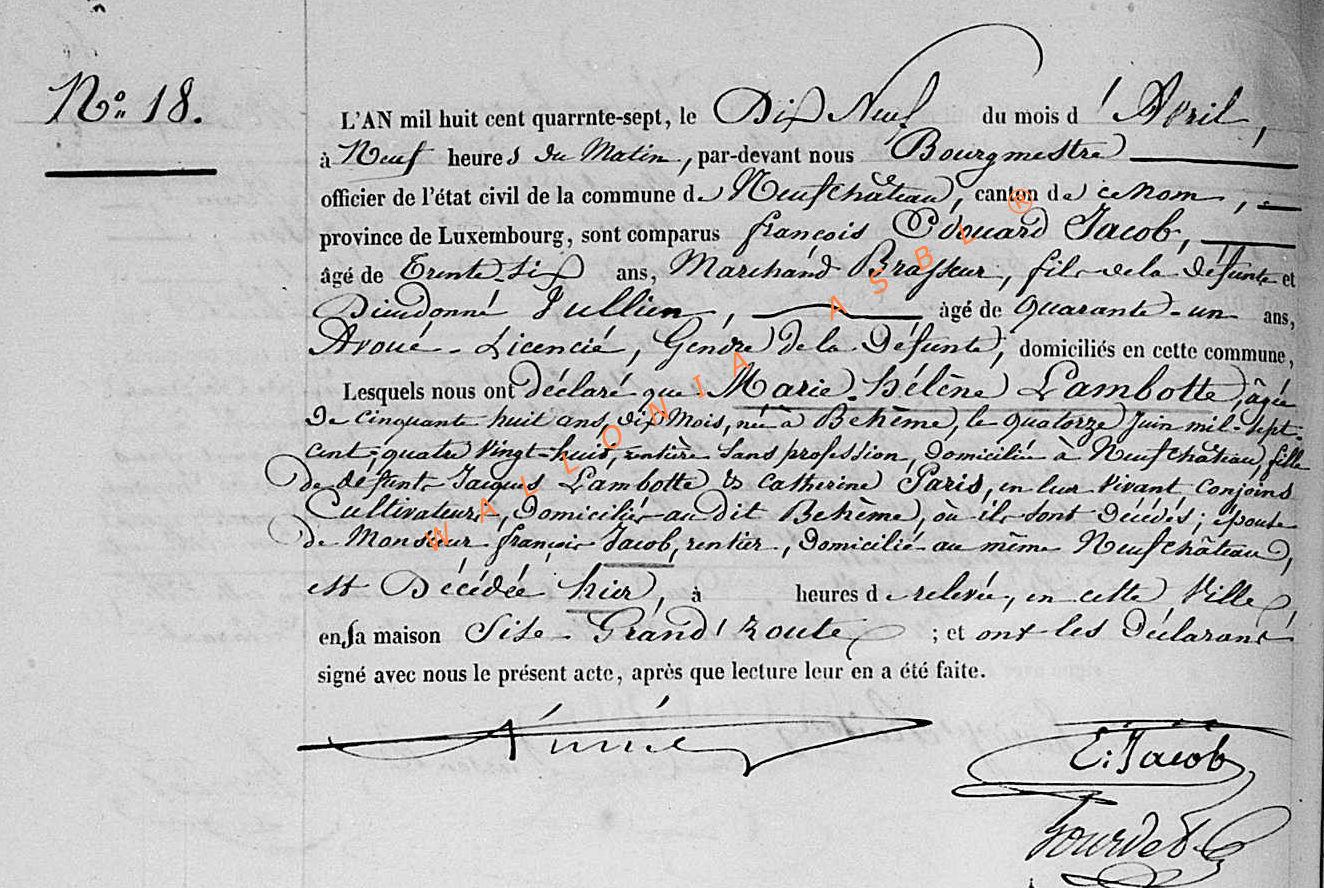 N° 18.
L'AN mil huit cent quarrnte-sept, le Dix Neuf du mois d'Avril,
à Neuf heures du Matin, par-devant nous Bourgmestre
officier de l'état civil de la commune de Neufchâteau, canton de ce nom,
province de Luxembourg, sont comparus françois Edouard Jacob,
âgé de Trente-six ans, Marchand Brasseur, fils de la défunte et
Dieudonné Jullien, àgé de quarante-un ans,
Avoué-Licencié, Gendre de la Défunte, domiciliés en cette commune,
Lesquels nous ont déclaré que Marie-hélène Lambotte, âgée
de cinquante huit ans, dix Mois, née à Behême, le quatorze Juin mil-sept-
cent-quatre Vingt-huit, rentière sans profession, domiciliée à Neufchâteau, fille
de défunts Jacques Lambotte & Catherine Paris, en leur vivant, conjoins
Cultivateurs, domiciliés au dit Behême, où ils sont décédés; épouse
de Monsieur françois Jacob, rentier, domicilié au même Neufchâteau,
est Décédée hier, à heures de relevée, en cette Ville,
en sa maison sise Grand'route ; et ont les Déclarans
signé avec nous le présent acte, après que lecture leur en a été faite.
E: Jacob
WALLONIA ASBL ®